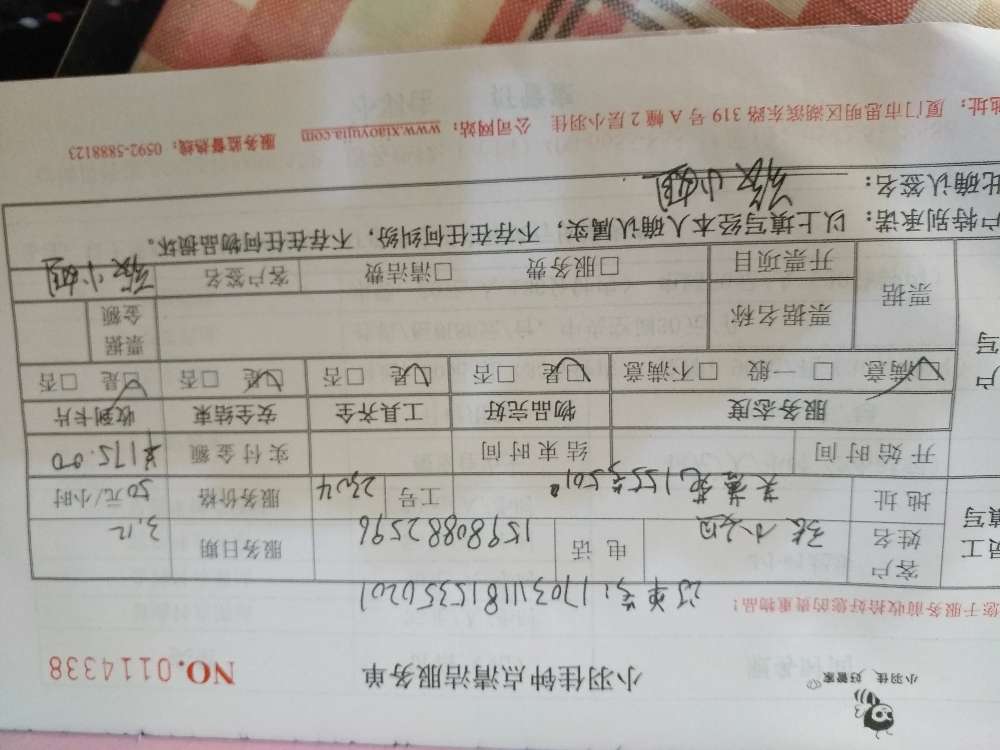 小羽佳 好管家
小羽佳钟点清洁服务单 NO.0114338
您于服务前收拾好您的贵重物品！
订单号:1703111815350201
客户姓名 张小姐 电话 15980882596 服务日期 3.12
地址 芙蓉苑155号501 工号 2304 服务价格 50元/小时
开始时间 结束时间 实付金额 ¥175.00
服务态度 物品完好 工具齐全 安全结束 收到卡片
☑满意 □一般 □不满意 ☑是 □否 ☑是 □否 ☑是 □否 ☑是 □否
票据 票据名称 票据金额
开票项目 □服务费 □清洁费 客户签名 张小姐
户特别承诺：以上填写经本人确认属实，不存在任何纠纷，不存在任何物品损坏。
此确认签名： 张小姐
地址：厦门市思明区湖滨东路319号A幢2层小羽佳 公司网站：www.xiaoyujia.com 服务监督热线：0592-5888123